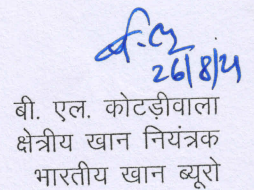 26/8/21
बी. एल. कोटड़ीवाला
क्षेत्रीय खान नियंत्रक
भारतीय खान ब्यूरो